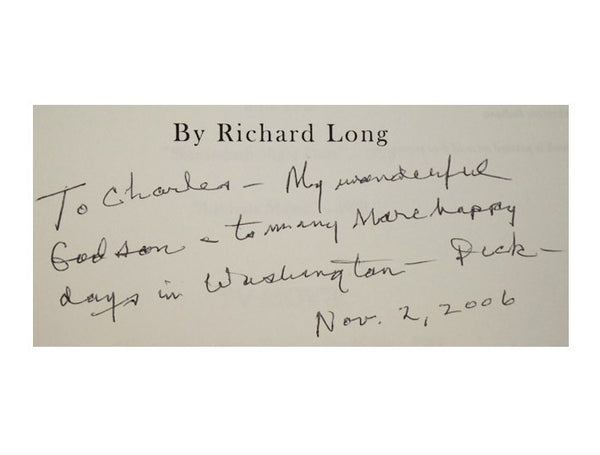 By Richard Long
To Charles – My wonderful
Godson – to many More happy
days in Washington – Dick –
Nov. 2, 2006